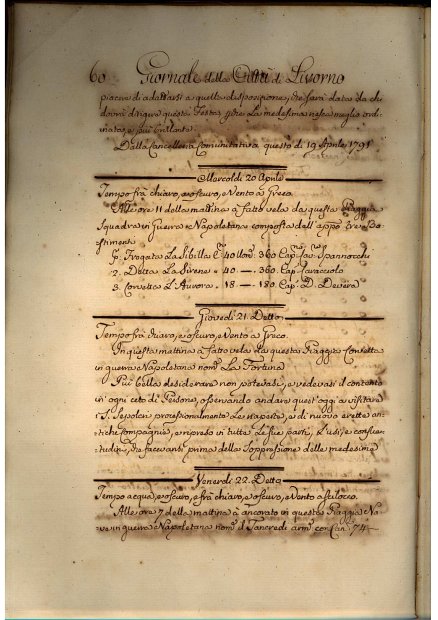 60 Giornale della Città di Livorno
piacere di adattarsi a quella disposizione, che sarà data da chi
dovrà dirigere questa Festa, per la medesima nesca meglio ordi-
nata, e più brillante.
Dalla Cancelleria Comunitativa questo di 19 Aprile 1791
Mercoldi 20 Aprile
Tempo frà chiaro, e oscuro, e Vento à Greco.
Alle ore 11 della mattina à fatto vela da questa Piaggia
Squadra in Guerra Napoletana composta dell' app.o tre Ba-
stimenti
P.a Fregata La Sibilla C.ni 40 Uom.i 360 Cap. Cav. Spannocchi
2. Detta La Sirena 40 — 360. Cap. Caracciolo
3. Corvetta L'Aurora 18 — 180 Cap. D. Devera
Giovedì 21. Detto
Tempo frà chiaro, e oscuro, e Vento à Greco.
In questa mattina à fatto vela da questa Piaggia Corvetta
in guerra Napoletana nom.a La Fortuna
Più bella desiderare non potevasi, e vedevasi il contento
in ogni ceto di Persone, osservando andare quest' oggi a visitare
i S. Sepolcri processionalmente Le staperte, e di nuovo erette an-
tiche Compagnie, e ripreso in tutte Le sue parti, L'usi, e consue-
tudini, che facevansi prima della Soppressione delle medesime
Venerdì 22. Detto
Tempo acqua, e oscuro, e frà chiaro, e oscuro, e Vento a Scilocco.
Alle ore 7 della mattina à ancorato in questa Piaggia Na-
ve in guerra Napoletana nom.a il Tancredi arm.a con Can.i 74